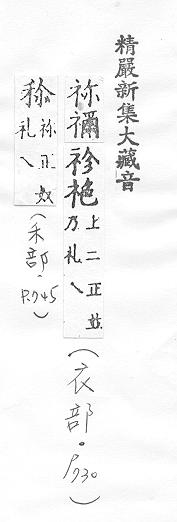 精嚴新集大藏音
祢禰袗袘上二正並乃礼乀
(衣部。P930)
䅟祢正奴礼乀
(禾部.P.945)